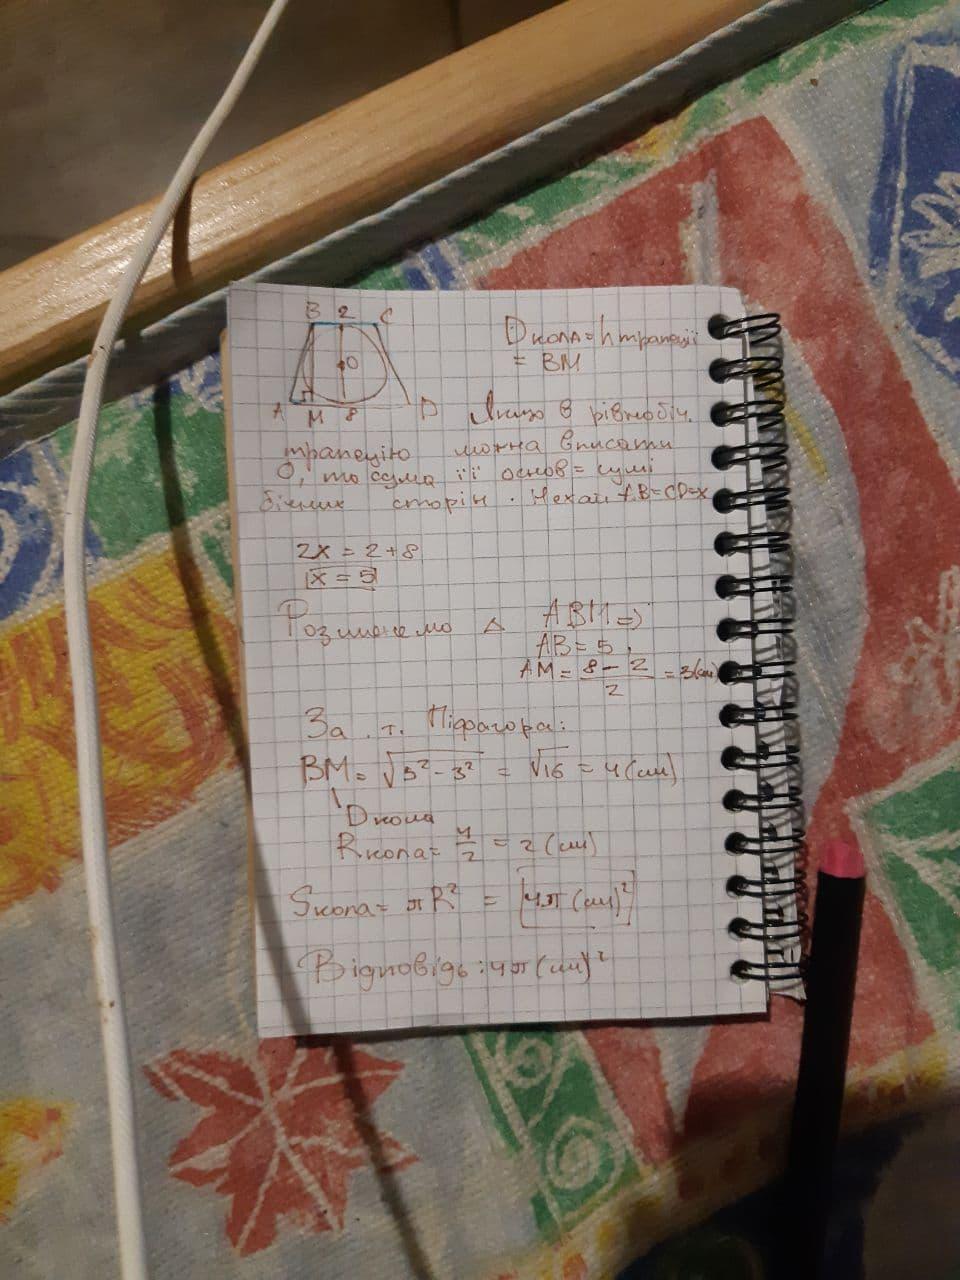 B 2 C
O
A M 8 D
D кола = h трапеції
= BM
Якщо в рівнобіч.
трапецію можна вписати
O, то сума її основ = сумі
бічних сторін. Нехай AB=CD=x
2x = 2+8
x = 5
Розглянемо △ ABM =>
AB = 5,
AM = (8 - 2)/2 = 3(см)
За т. Піфагора:
BM = √(5² - 3²) = √16 = 4(см)
D кола
R кола = 4/2 = 2 (см)
S кола = πR² = 4π (см)²
Відповідь: 4π (см)²